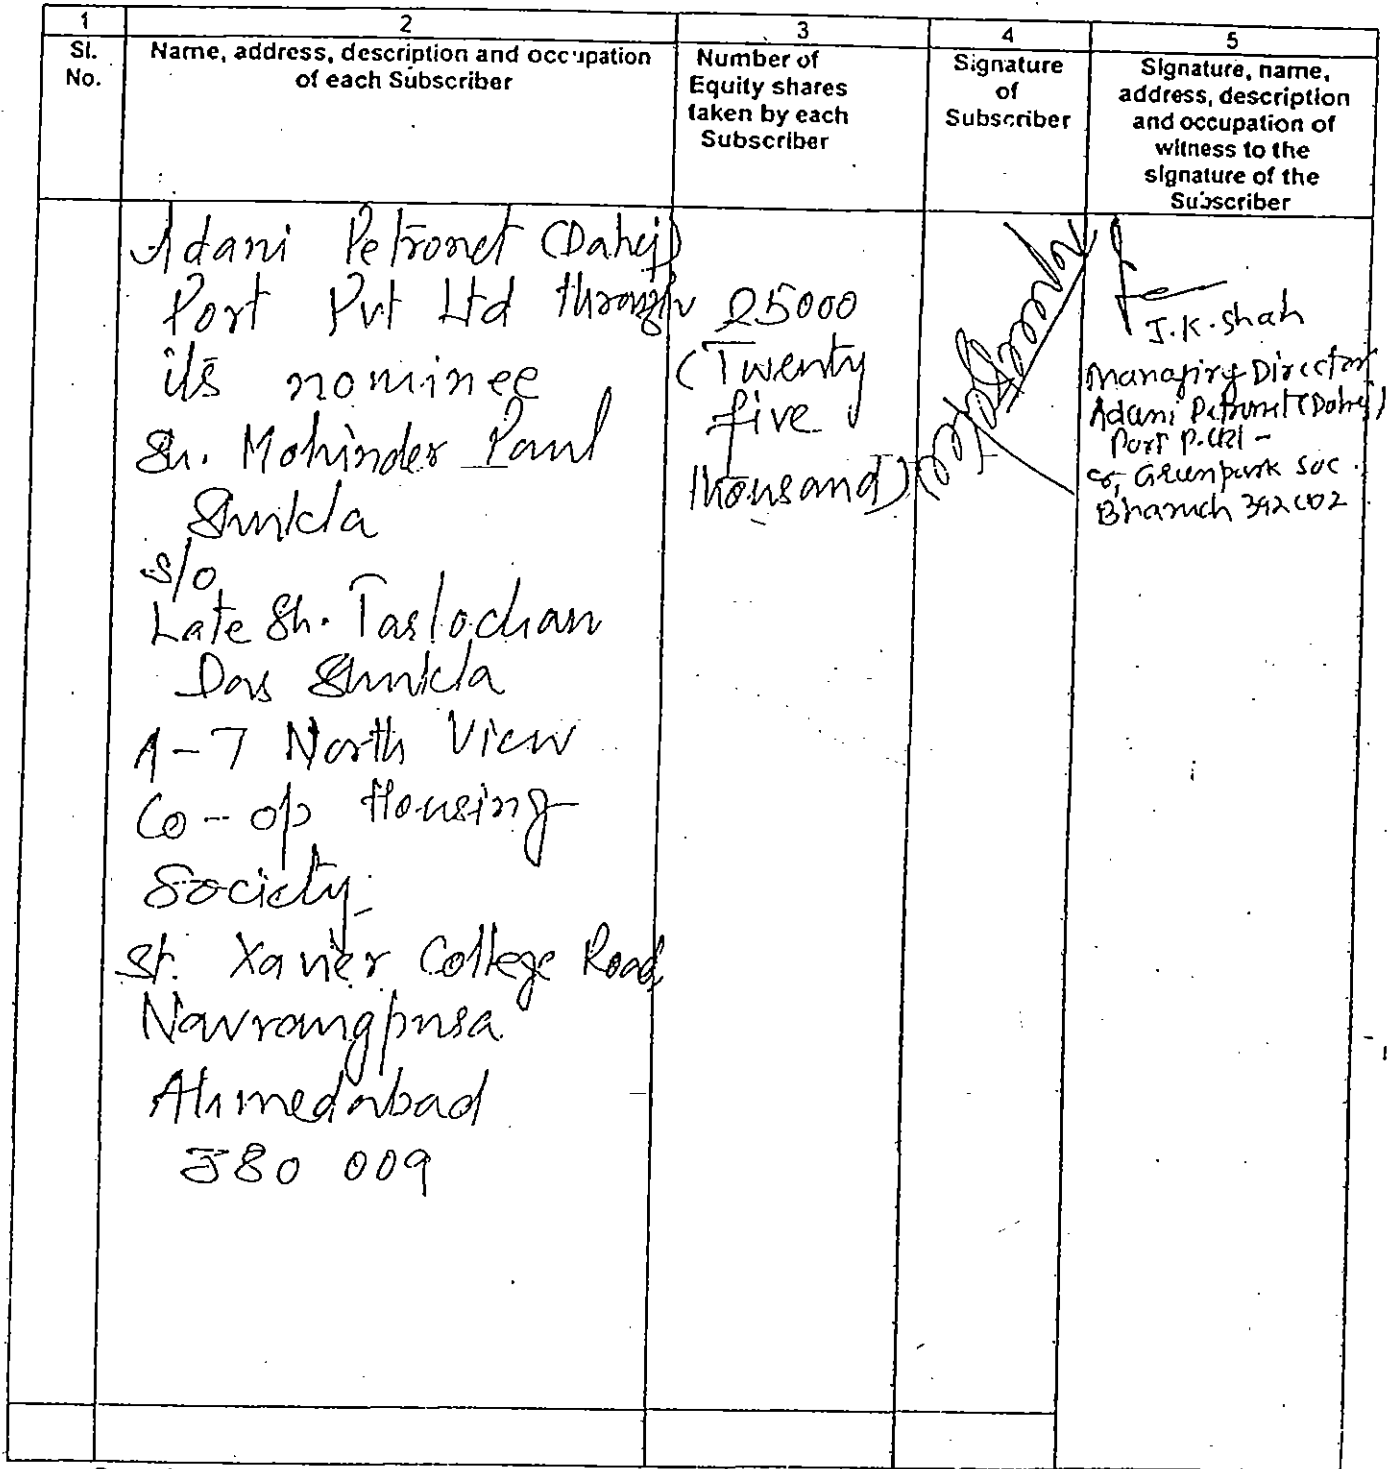 1 2 3 4 5
Sl. No.
Name, address, description and occupation
of each Subscriber
Number of
Equity shares
taken by each
Subscriber
Signature
of
Subscriber
Signature, name,
address, description
and occupation of
witness to the
signature of the
Subscriber
Adani Petronet (Dahej)
Port Pvt Ltd through
its nominee
Sh. Mohinder Paul
Shukla
s/o
Late Sh. Tarlochan
Das Shukla
A-7 North View
Co-op Housing
Society
St. Xavier College Road
Navrangpura
Ahmedabad
380 009
25000
(Twenty
five
thousand)
J.K. Shah
Managing Director
Adani Petronet (Dahej)
Port P. Ltd -
Greenpark Soc.
Bharuch 392002